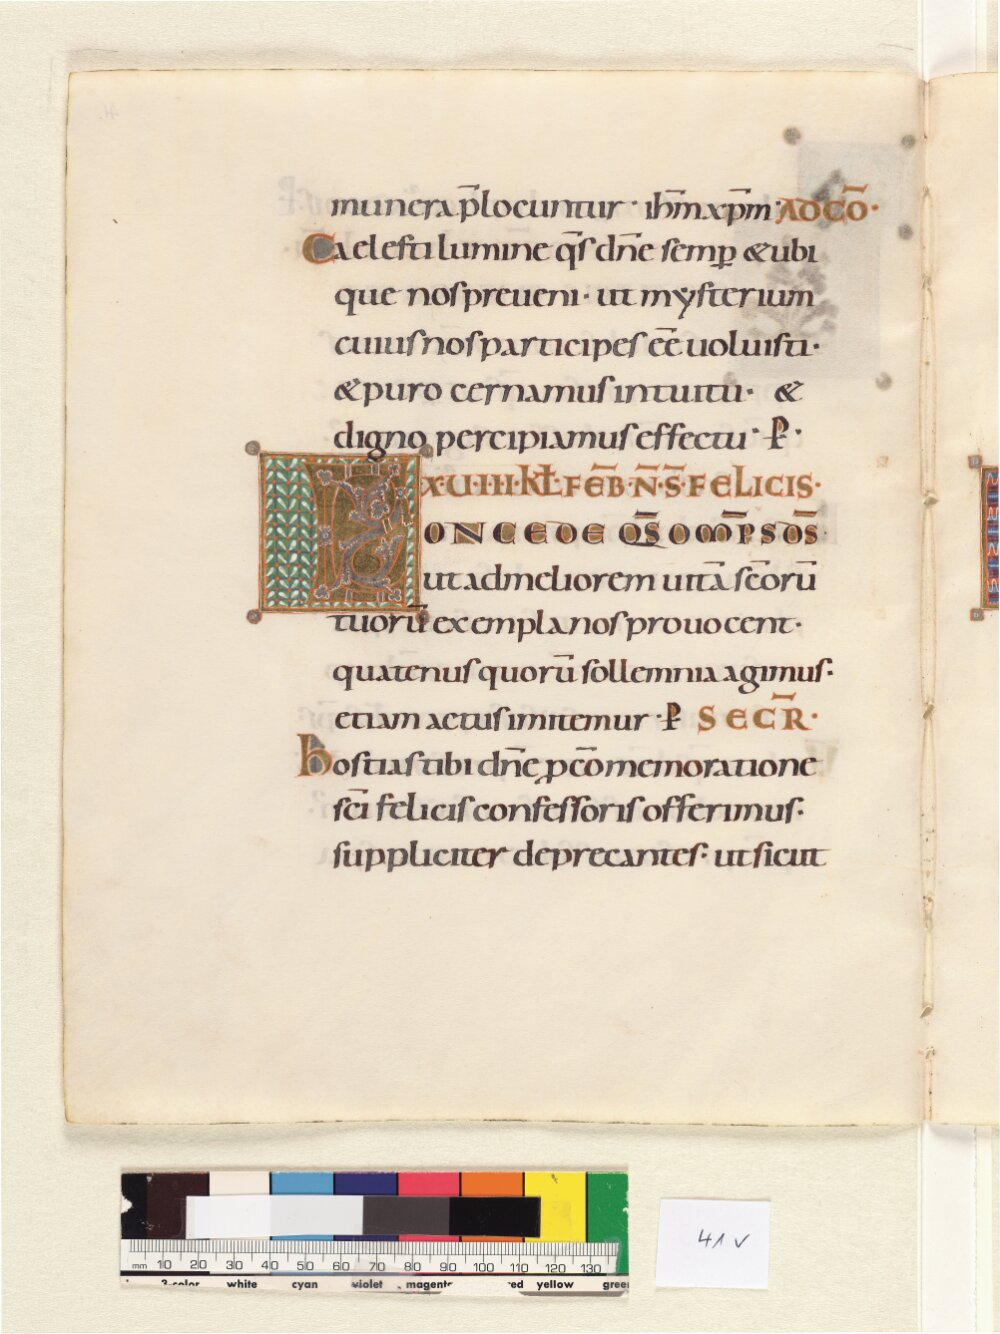 munera p̄locuntur · ih̄m xp̄m · AD CŌ·
Caelesti lumine q̄s dn̄e semp̲ &ubi
que nos preueni· ut mysterium
cuius nos participes ēē uoluisti·
& puro cernamus intuitu· &
digno percipiamus effectu· P̲·
XUIIII·KL̄·FEB̄·N̄·S̄·FELICIS·
CONCEDE QS̄ OM̄PS D̄S
ut ad meliorem uitā sc̄orū
tuorū exempla nos prouocent·
quatenus quorū sollemnia agimus·
etiam actus imitemur· P̲ SECR̄·
hostias tibi dn̄e p̲ cōmemoratione
sc̄i felicis confessoris offerimus·
suppliciter deprecantes· ut sicut
mm 10 20 30 40 50 60 70 80 90 100 110 120 130
3-color white cyan violet magent red yellow green
41v